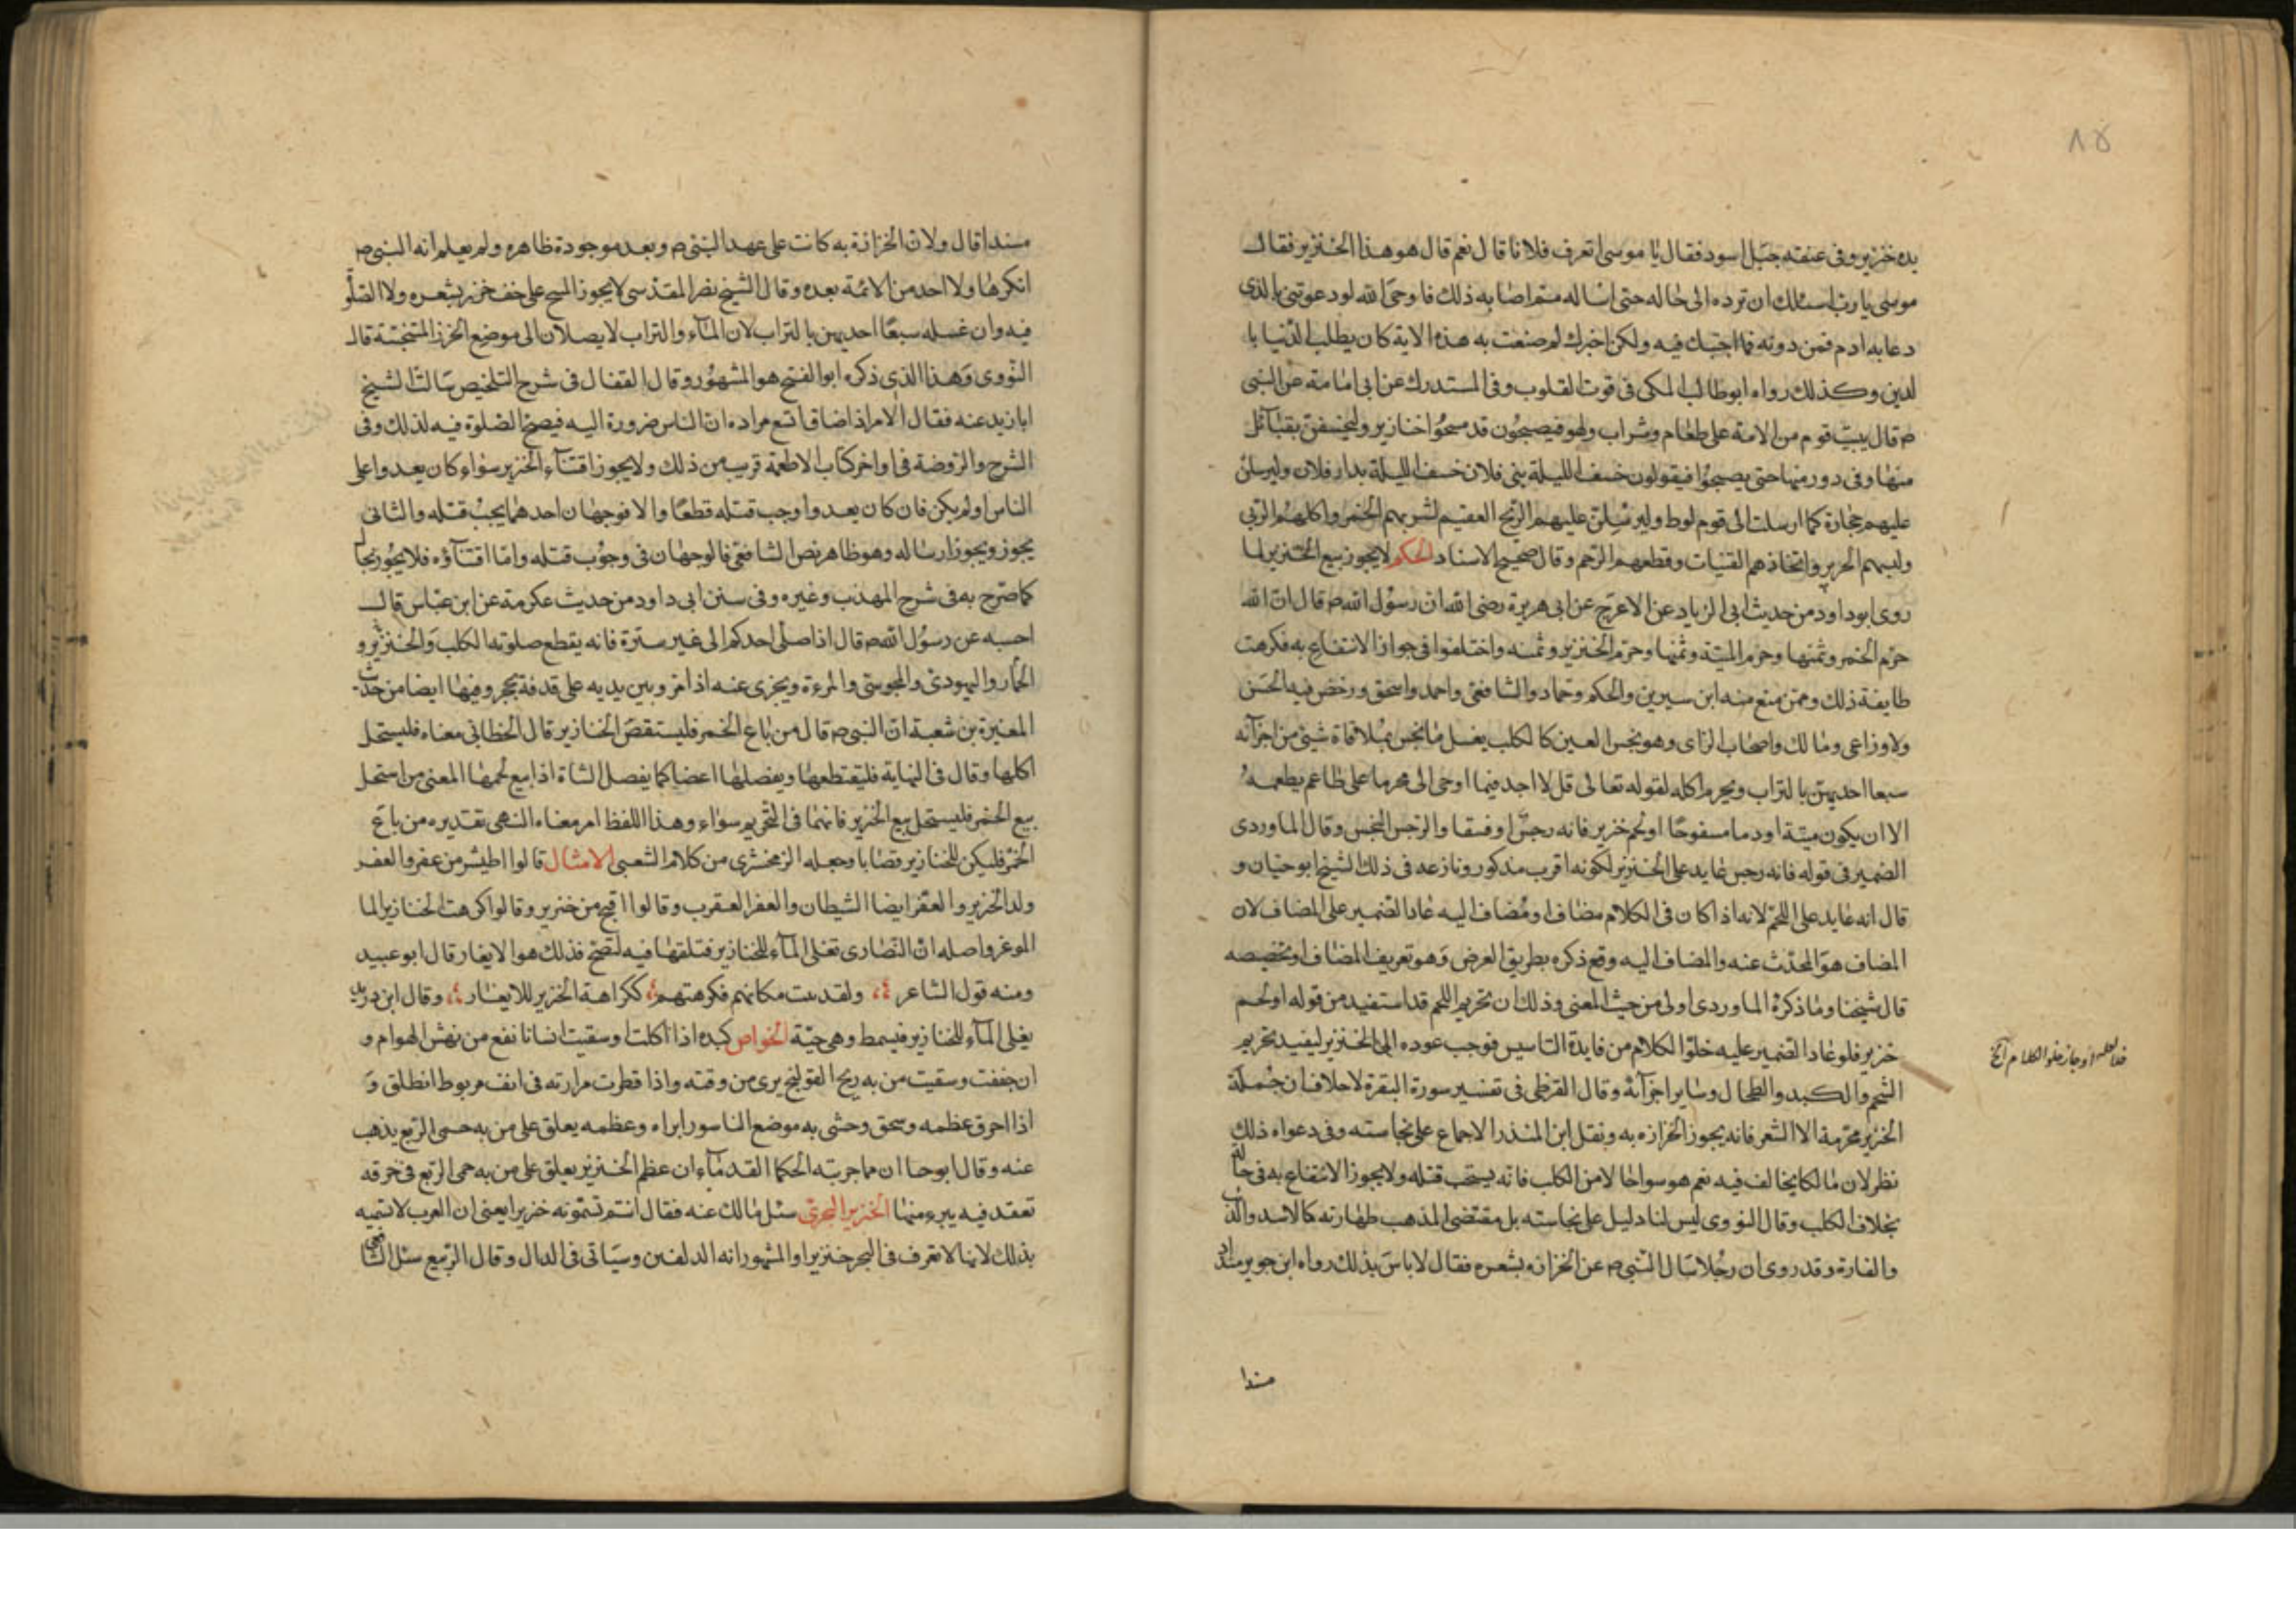 ٨٥
يده خنزير وفى عنقه حبل اسود فقال يا موسى اتعرف فلانا قال نعم قال هو هذا الخنزير فقال
موسى يا رب اسئلك ان ترده الى حاله حتى اساله مم اصابه ذلك فاوحى الله لو دعوتنى بالذى
دعا به ادم فمن دونه ما اجبتك فيه ولكن اخبرك لم صنعت به هذه الاية كان يطلب الدنيا با
لدين وكذلك رواه ابو طالب المكى فى قوت القلوب وفى المستدرك عن ابى امامة عن النبى
ص قال يبيت قوم من الامة على طعام وشراب ولهو فيصبحون قد مسخوا خنازير وليخسفن بقبائل
منها وفى دور منها حتى يصبحوا فيقولون خسف الليلة ببنى فلان خسف الليلة بدار فلان وليرسلن
عليهم حجارة كما ارسلت الى قوم لوط وليرسلن عليهم الريح العقيم لشربهم الخمر واكلهم الربى
ولبسهم الحرير واتخاذهم القينات وقطعهم الرحم وقال صحيح الاسناد الحكم لا يجوز بيع الخنزير لما
روى ابو داود من حديث ابى الزياد عن الاعرج عن ابى هريرة رضى الله ان رسول الله ص قال ان الله
حرم الخمر وثمنها وحرم الميتة وثمنها وحرم الخنزير وثمنه واختلفوا فى جواز الانتفاع به فكرهت
طايفة ذلك وممن منع منه ابن سيرين والحكم وحماد والشافعى واحمد واسحق ورخص فيه الحسن
ولاوزاعى ومالك واصحاب الراى وهو نجس العين كالكلب يغسل ما نجس بملاقاة شيئ من اجزائه
سبعا احديهن بالتراب ويحرم اكله لقوله تعالى قل لا اجد فيما اوحى الى محرما على طاعم يطعمه
الا ان يكون ميتة او دما مسفوحا او لحم خنزير فانه رجس او فسقا والرجس النجس وقال الماوردى
الضمير فى قوله فانه رجس عايد على الخنزير لكونه اقرب مذكور ونازعه فى ذلك الشيخ ابو حيان و
قال انه عايد على اللحم لانه اذا كان فى الكلام مضاف او مضاف اليه عاد الضمير على المضاف لان
المضاف هو المحدث عنه والمضاف اليه وقع ذكره بطريق العرض وهو تعريف المضاف او تخصيصه
قال شيخنا وما ذكره الماوردى اولى من حيث المعنى وذلك ان تحريم اللحم قد استفيد من قوله او لحم
خنزير فلو عاد الضمير عليه خلو الكلام من فايدة التاسيس فوجب عوده الى الخنزير ليفيد تحريم
الشحم والكبد والطحال وساير اجزائه وقال القرطى فى تفسير سورة البقرة لا خلاف ان جملة
الخنزير محرمة الا الشعر فانه يجوز الخرازه به ونقل ابن المنذر الاجماع على نجاسته وفى دعواه ذلك
نظر لان مالكا يخالف فيه نعم هو سوا حالا من الكلب فانه يستحب قتله ولا يجوز الانتفاع به فى حالة
بخلاف الكلب وقال النووى ليس لنا دليل على نجاسته بل مقتضى المذهب طهارته كالاسد والذئب
والفارة وقد روى ان رجلا سال النبى ص عن الخرازه بشعره فقال لا باس بذلك رواه ابن جوير منداد
خلو الكلام الخ
مندا
مندا قال ولان الخرازة به كانت على عهد النبى ص وبعد موجودة ظاهره ولم يعلم انه النبى ص
انكرها ولا احد من الائمة بعده وقال الشيخ نصر المقدسى لا يجوز المسح على خف خرز بشعره ولا الصلو
فيه وان غسله سبعا احديهن بالتراب لان الماء والتراب لا يصلان الى موضع الخرز المتنجسة قال
النووى وهذا الذى ذكره ابو الفتح هو المشهور وقال القفال فى شرح التلخيص سالت الشيخ
ابا زيد عنه فقال الامر اذا ضاق اتسع مراده ان الناس ضرورة اليه فيصح الصلوة فيه لذلك وفى
الشرح والروضة فى اواخر كتاب الاطعمة قريب من ذلك ولا يجوز اقتناء الخنزير سواء كان يعدوا على
الناس او لم يكن فان كان يعدوا وجب قتله قطعا والا فوجهان احدهما يجب قتله والثانى
يجوز ويجوز ارساله وهو ظاهر نص الشافعى فالوجهان فى وجوب قتله واما اقتناؤه فلا يجوز بحا
كما صرح به فى شرح المهذب وغيره وفى سنن ابى داود من حديث عكرمة عن ابن عباس قال
احسبه عن رسول الله ص قال اذا صلى احدكم الى غير سترة فانه يقطع صلوته الكلب والخنزير و
الحمار واليهودى والمجوسى والمرءة ويجزى عنه اذا مر وبين يديه على قدفة بحجر وفيها ايضا من حديث
المغيرة بن شعبة ان النبى ص قال من باع الخمر فليستقص الخنازير قال الخطابى معناه فليستحل
اكلها وقال فى النهاية فليقتطعها ويفصلها اعضا كما يفصل الشاة اذا بيع لحمها المعنى من استحل
بيع الخمر فليستحل بيع الخنزير فانهما فى التحريم سواء وهذا اللفظ امر معناه النهى تقديره من باع
الخمر فليكن للخنازير قصابا وجعله الزمخشرى من كلام الشعبى الامثال قالوا اطيش من عفر والعفر
ولد الخنزير والعفر ايضا الشيطان والعفر العقرب وقالوا اقبح من خنزير وقالوا كرهت الخنازير الما
الموغر واصله ان النصارى تغلى الماء للخنازير فتلقها فيه لتصح فذلك هو الايغار قال ابو عبيد
ومنه قول الشاعر ولقد رءت مكانهم فكرهتهم ككراهة الخنزير للايغار وقال ابن دريد
يغلى الماء للخنازير فيسمط وهى حية الخواص كبده اذا اكلت او سقيت انسانا نفع من نهش الهوام و
ان جففت وسقيت من به ريح القولنج يرى من وقته واذا قطرت مرارته فى انف مربوط انطلق و
اذا احرق عظمه وسحق وحشى به موضع الناسور ابراه وعظمه يعلق على من به حمى الربع يذهب
عنه وقال ابو حا ان مما جربته الحكما القدماء ان عظم الخنزير يعلق على من به حمى الربع فى خرقه
تعقد فيه يبرء منها الخنزير البحرى سئل مالك عنه فقال انتم تسمونه خنزيرا يعنى ان العرب لا تسميه
بذلك لانها لا تعرف فى البحر خنزيرا والمشهور انه الدلفين وسياتى فى الدال وقال الربيع سئل الشافعى